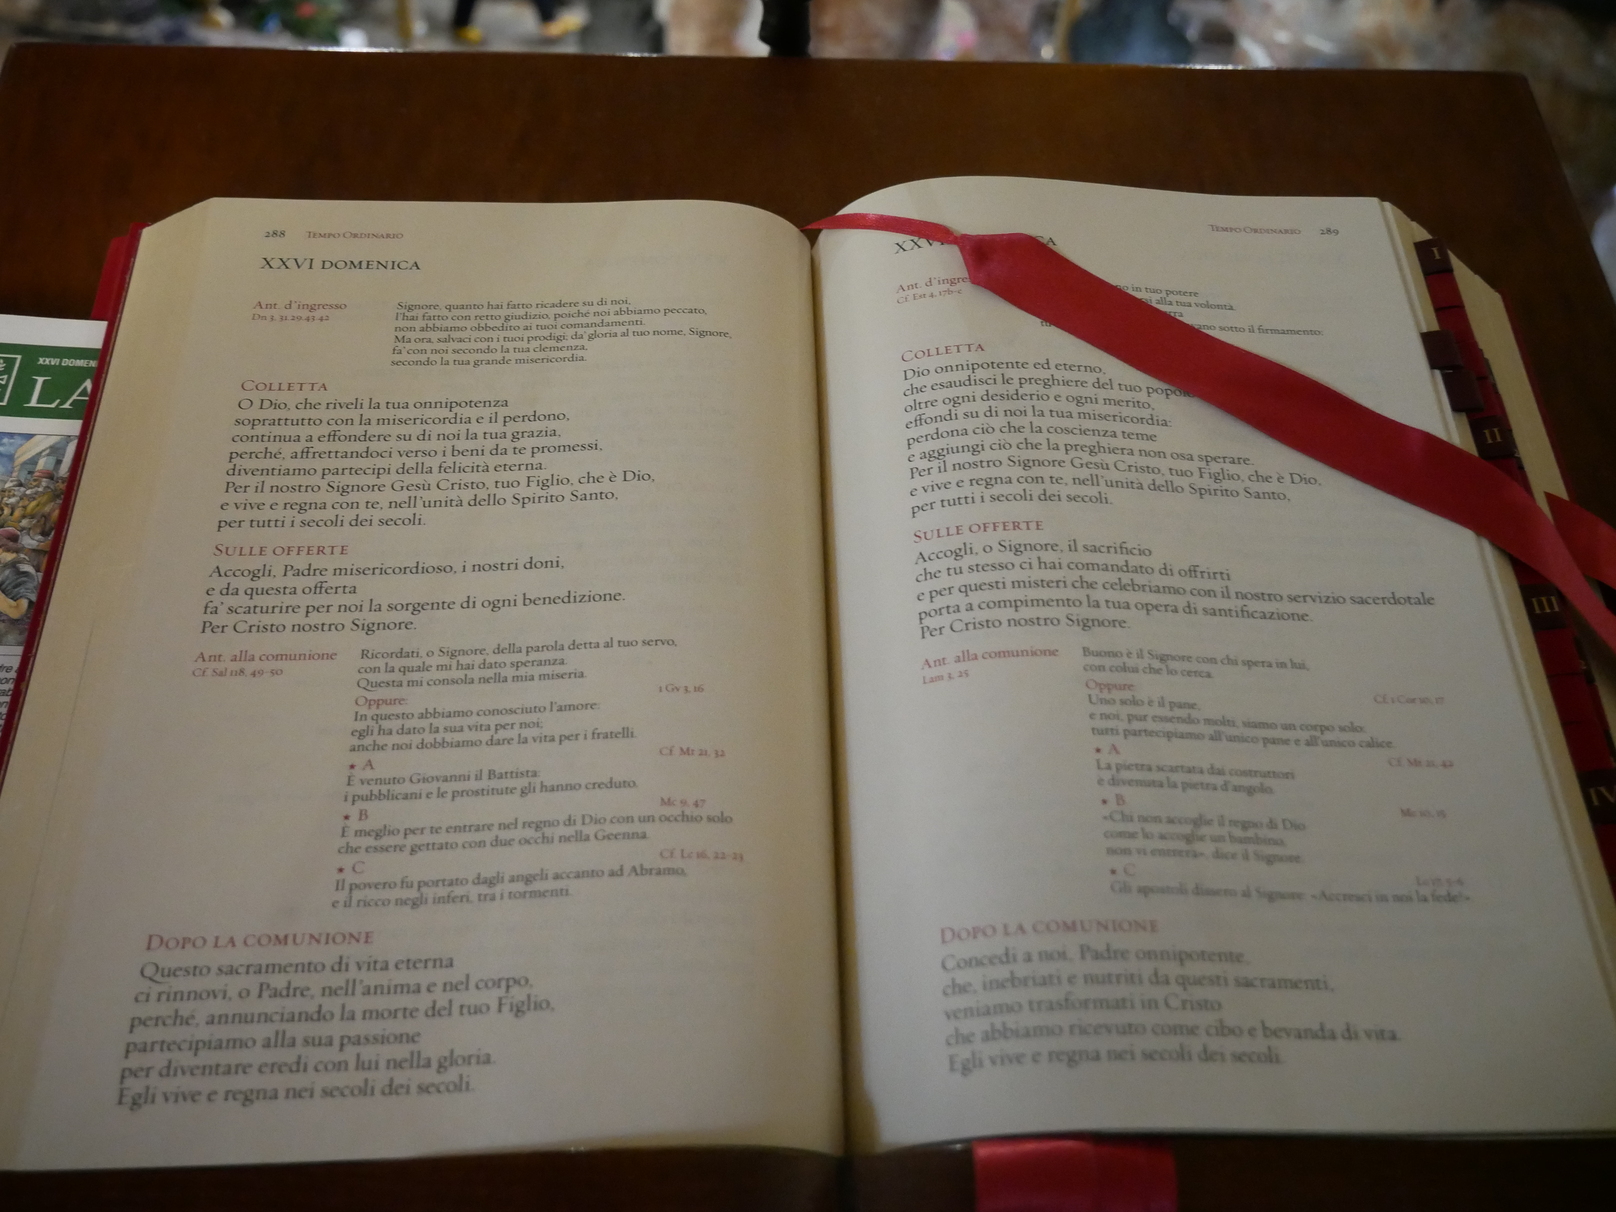 288 Tempo Ordinario
XXVI DOMENICA
Ant. d'ingresso
Dn 3, 31.29.43.42
Signore, quanto hai fatto ricadere su di noi,
l'hai fatto con retto giudizio, poiché noi abbiamo peccato,
non abbiamo obbedito ai tuoi comandamenti.
Ma ora, salvaci con i tuoi prodigi; da' gloria al tuo nome, Signore,
fa' con noi secondo la tua clemenza,
secondo la tua grande misericordia.
Colletta
O Dio, che riveli la tua onnipotenza
soprattutto con la misericordia e il perdono,
continua a effondere su di noi la tua grazia,
perché, affrettandoci verso i beni da te promessi,
diventiamo partecipi della felicità eterna.
Per il nostro Signore Gesù Cristo, tuo Figlio, che è Dio,
e vive e regna con te, nell'unità dello Spirito Santo,
per tutti i secoli dei secoli.
Sulle offerte
Accogli, Padre misericordioso, i nostri doni,
e da questa offerta
fa' scaturire per noi la sorgente di ogni benedizione.
Per Cristo nostro Signore.
Ant. alla comunione
Cf. Sal 118, 49-50
Ricordati, o Signore, della parola detta al tuo servo,
con la quale mi hai dato speranza.
Questa mi consola nella mia miseria.
Oppure: 1 Gv 3, 16
In questo abbiamo conosciuto l'amore:
egli ha dato la sua vita per noi;
anche noi dobbiamo dare la vita per i fratelli.
★ A Cf. Mt 21, 32
È venuto Giovanni il Battista:
i pubblicani e le prostitute gli hanno creduto.
★ B Mc 9, 47
È meglio per te entrare nel regno di Dio con un occhio solo
che essere gettato con due occhi nella Geenna.
★ C Cf. Lc 16, 22-23
Il povero fu portato dagli angeli accanto ad Abramo,
e il ricco negli inferi, tra i tormenti.
Dopo la comunione
Questo sacramento di vita eterna
ci rinnovi, o Padre, nell'anima e nel corpo,
perché, annunciando la morte del tuo Figlio,
partecipiamo alla sua passione
per diventare eredi con lui nella gloria.
Egli vive e regna nei secoli dei secoli.
Tempo Ordinario 289
Ant. d'ingre
Cf. Est 4, 17b-c
in tuo potere
alla tua volontà.
sotto il firmamento:
Colletta
Dio onnipotente ed eterno,
che esaudisci le preghiere del tuo popolo
oltre ogni desiderio e ogni merito,
effondi su di noi la tua misericordia:
perdona ciò che la coscienza teme
e aggiungi ciò che la preghiera non osa sperare.
Per il nostro Signore Gesù Cristo, tuo Figlio, che è Dio,
e vive e regna con te, nell'unità dello Spirito Santo,
per tutti i secoli dei secoli.
Sulle offerte
Accogli, o Signore, il sacrificio
che tu stesso ci hai comandato di offrirti
e per questi misteri che celebriamo con il nostro servizio sacerdotale
porta a compimento la tua opera di santificazione.
Per Cristo nostro Signore.
Ant. alla comunione
Lam 3, 25
Buono è il Signore con chi spera in lui,
con colui che lo cerca.
Oppure: Cf. 1 Cor 10, 17
Uno solo è il pane,
e noi, pur essendo molti, siamo un corpo solo:
tutti partecipiamo all'unico pane e all'unico calice.
★ A Cf. Mt 21, 42
La pietra scartata dai costruttori
è divenuta la pietra d'angolo.
★ B Mc 10, 15
«Chi non accoglie il regno di Dio
come lo accoglie un bambino,
non vi entrerà», dice il Signore.
★ C Lc 17, 5-6
Gli apostoli dissero al Signore: «Accresci in noi la fede!»
Dopo la comunione
Concedi a noi, Padre onnipotente,
che, inebriati e nutriti da questi sacramenti,
veniamo trasformati in Cristo
che abbiamo ricevuto come cibo e bevanda di vita.
Egli vive e regna nei secoli dei secoli.
I
II
III
IV
XXVI DOMEN
LA